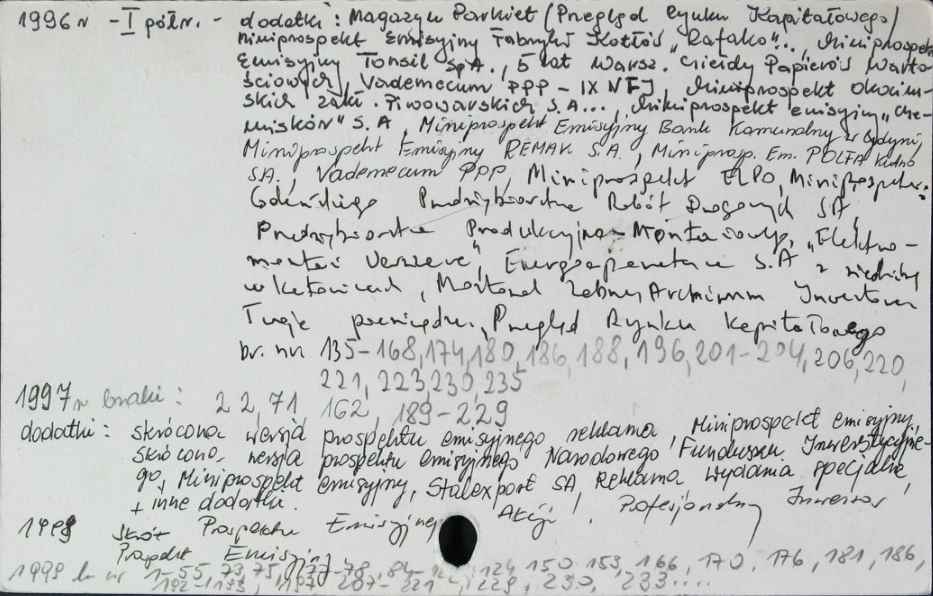 1996 r - I półr. - dodatki: Magazyn Parkiet (Przegląd Rynku Kapitałowego)
Miniprospekt Emisyjny Fabryki Kotłów "Rafako"..., Miniprospekt
Emisyjny Tonsil SpA., 5 lat Warsz. Giełdy Papierów Warto
ściowych, Vademecum PPP - IX NFJ, Miniprospekt Okocim-
skich Zakł. Piwowarskich S.A..., Miniprospekt emisyjny "Che-
miskór" S.A, Miniprospekt Emisyjny Bank Komunalny w Gdyni,
Miniprospekt Emisyjny REMAK S.A., Miniprosp. Em. POLFA Kutno
SA., Vademecum PPP, Miniprospekt ELPO, Miniprospekt
Gdańskiego Przedsiębiorstwa Robót Drogowych SA,
Przedsiębiorstwa Produkcyjno-Montażowego "Elektro-
montaż Warszawa", Energoaparatura S.A z siedzibą
w Katowicach, Mostostal Zabrze, Archiwum Inwestora
Twoje pieniądze, Przegląd Rynku Kapitałowego
br. nr 135-168, 174, 180, 186, 188, 196, 201-204, 206, 220,
221, 223, 230, 235
1997 r braki: 22, 71, 162, 189-229
dodatki: skrócona wersja prospektu emisyjnego reklama, Miniprospekt emisyjny,
skrócona wersja prospektu emisyjnego Narodowego Funduszu Inwestycyjne-
go, Miniprospekt emisyjny, Stalexport SA, Reklama wydania specjalne,
+ inne dodatki.
1998 Skrót Prospektu Emisyjnego Akcji, Profesjonalny Inwestor
Prospekt Emisyjny
1999 br nr 1-55, 73, 75, 77-78, 84- 124, 150, 153, 166, 170, 176, 181, 186,
192-193, 197, 207-221, 229, 230, 233....